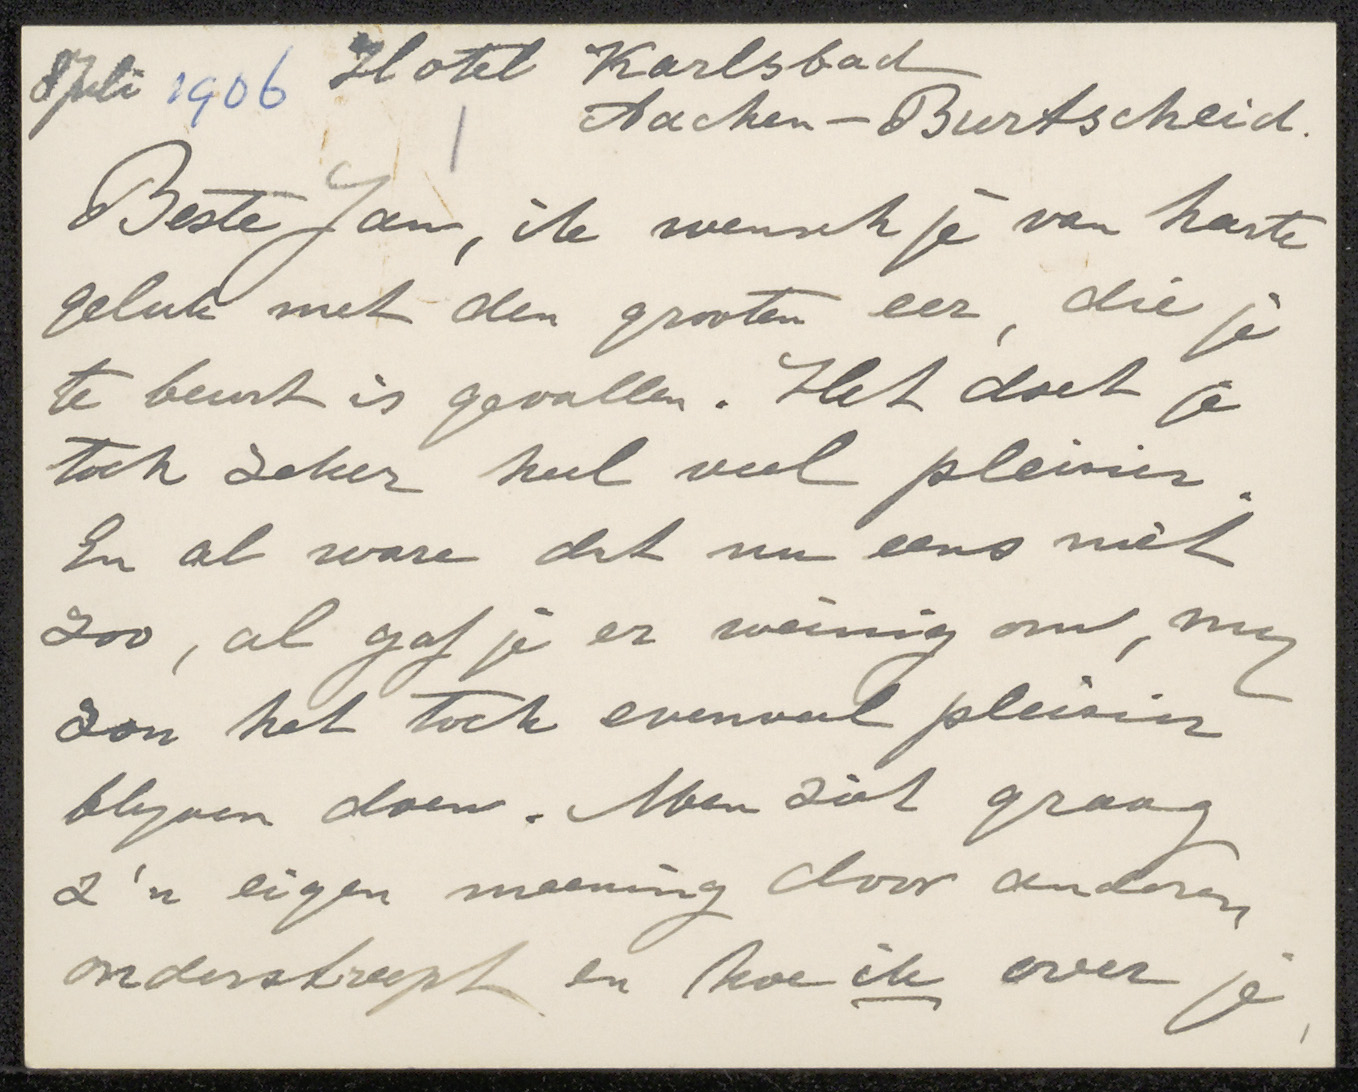 8 Juli 1906 Hotel Karlsbad
Aachen – Burtscheid.
Beste Jan, ik wensch je van harte
geluk met den grooten eer, die je
te beurt is gevallen. Het doet je
toch zeker heel veel pleisier.
En al ware dat nu eens niet
zoo, al gaf je er weinig om, my
zou het toch evenveel pleisier
blyven doen. Men ziet graag
z'n eigen meening door anderen
onderstreept en hoe ik over je